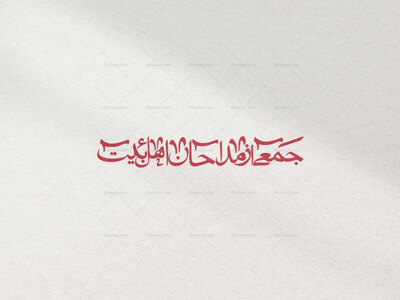 جمعی از مداحان اهل بیت